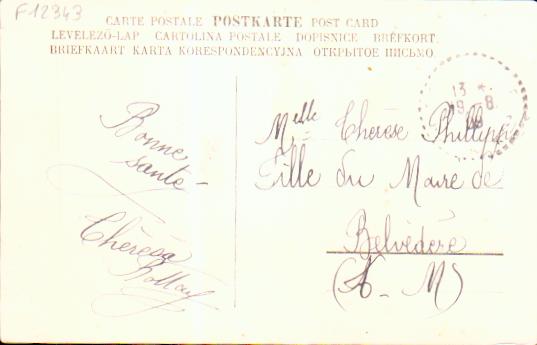 F12343
CARTE POSTALE POSTKARTE POST CARD
LEVELEZŐ-LAP CARTOLINA POSTALE DOPISNICE BRÉFKORT.
BRIEFKAART KARTA KORESPONDENCYJNA ОТКРЫТОЕ ПИСЬМО.
13 *
9 - 8
Bonne
santé -
Thérésa
Melle Thérèse Philippi
Fille du Maire de
Belvédère
(A - M)